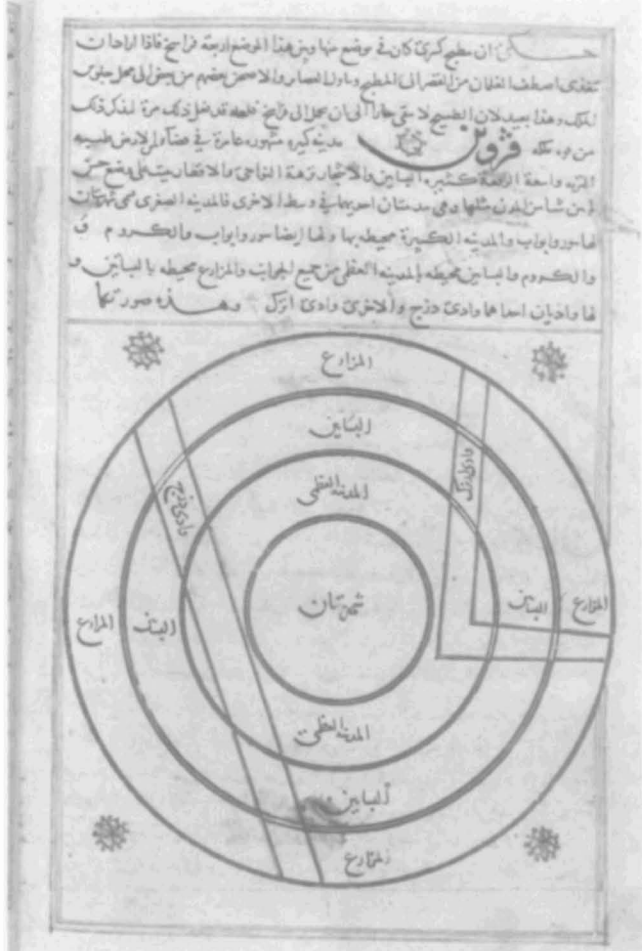 ان مطبخ كسرى كان في موضع منها وبين هذا الموضع اربعة فراسخ فاذا اراد ان
يتغذى اصطف الغلمان من القصر الى المطبخ بعضهم من بعض الى محل جلوس
الملك وهذا بعيد لان الطبيخ لا يبقى حارا الى ان يحمل الى فراسخ فعل ذلك مرة لذكر ذلك
من قزوين مدينة كبيرة مشهورة عامرة في فضاء من الارض طيبة
التربة واسعة الرقعة كثيرة البساتين والاشجار نزهة النواحي والاقطار بنيت على وضع حسن
وهي مدينتان احديهما في وسط الاخرى فالمدينة الصغرى تسمى شهرستان
لها سور وابواب والمدينه الكبيرة محيطه بها ولها ايضا سور وابواب والكروم
والكروم والبساتين محيطه بالمدينه العظمى من جميع الجوانب والمزارع محيطه بالبساتين و
لها واديان احداهما وادى درج والاخرى وادى اترك وهذه صورتها
المزارع
البساتين
المدينه العظمى
وادى اترك
وادى درج
شهرستان
المزارع
البساتين
البساتين
المزارع
المدينه العظمى
البساتين
المزارع